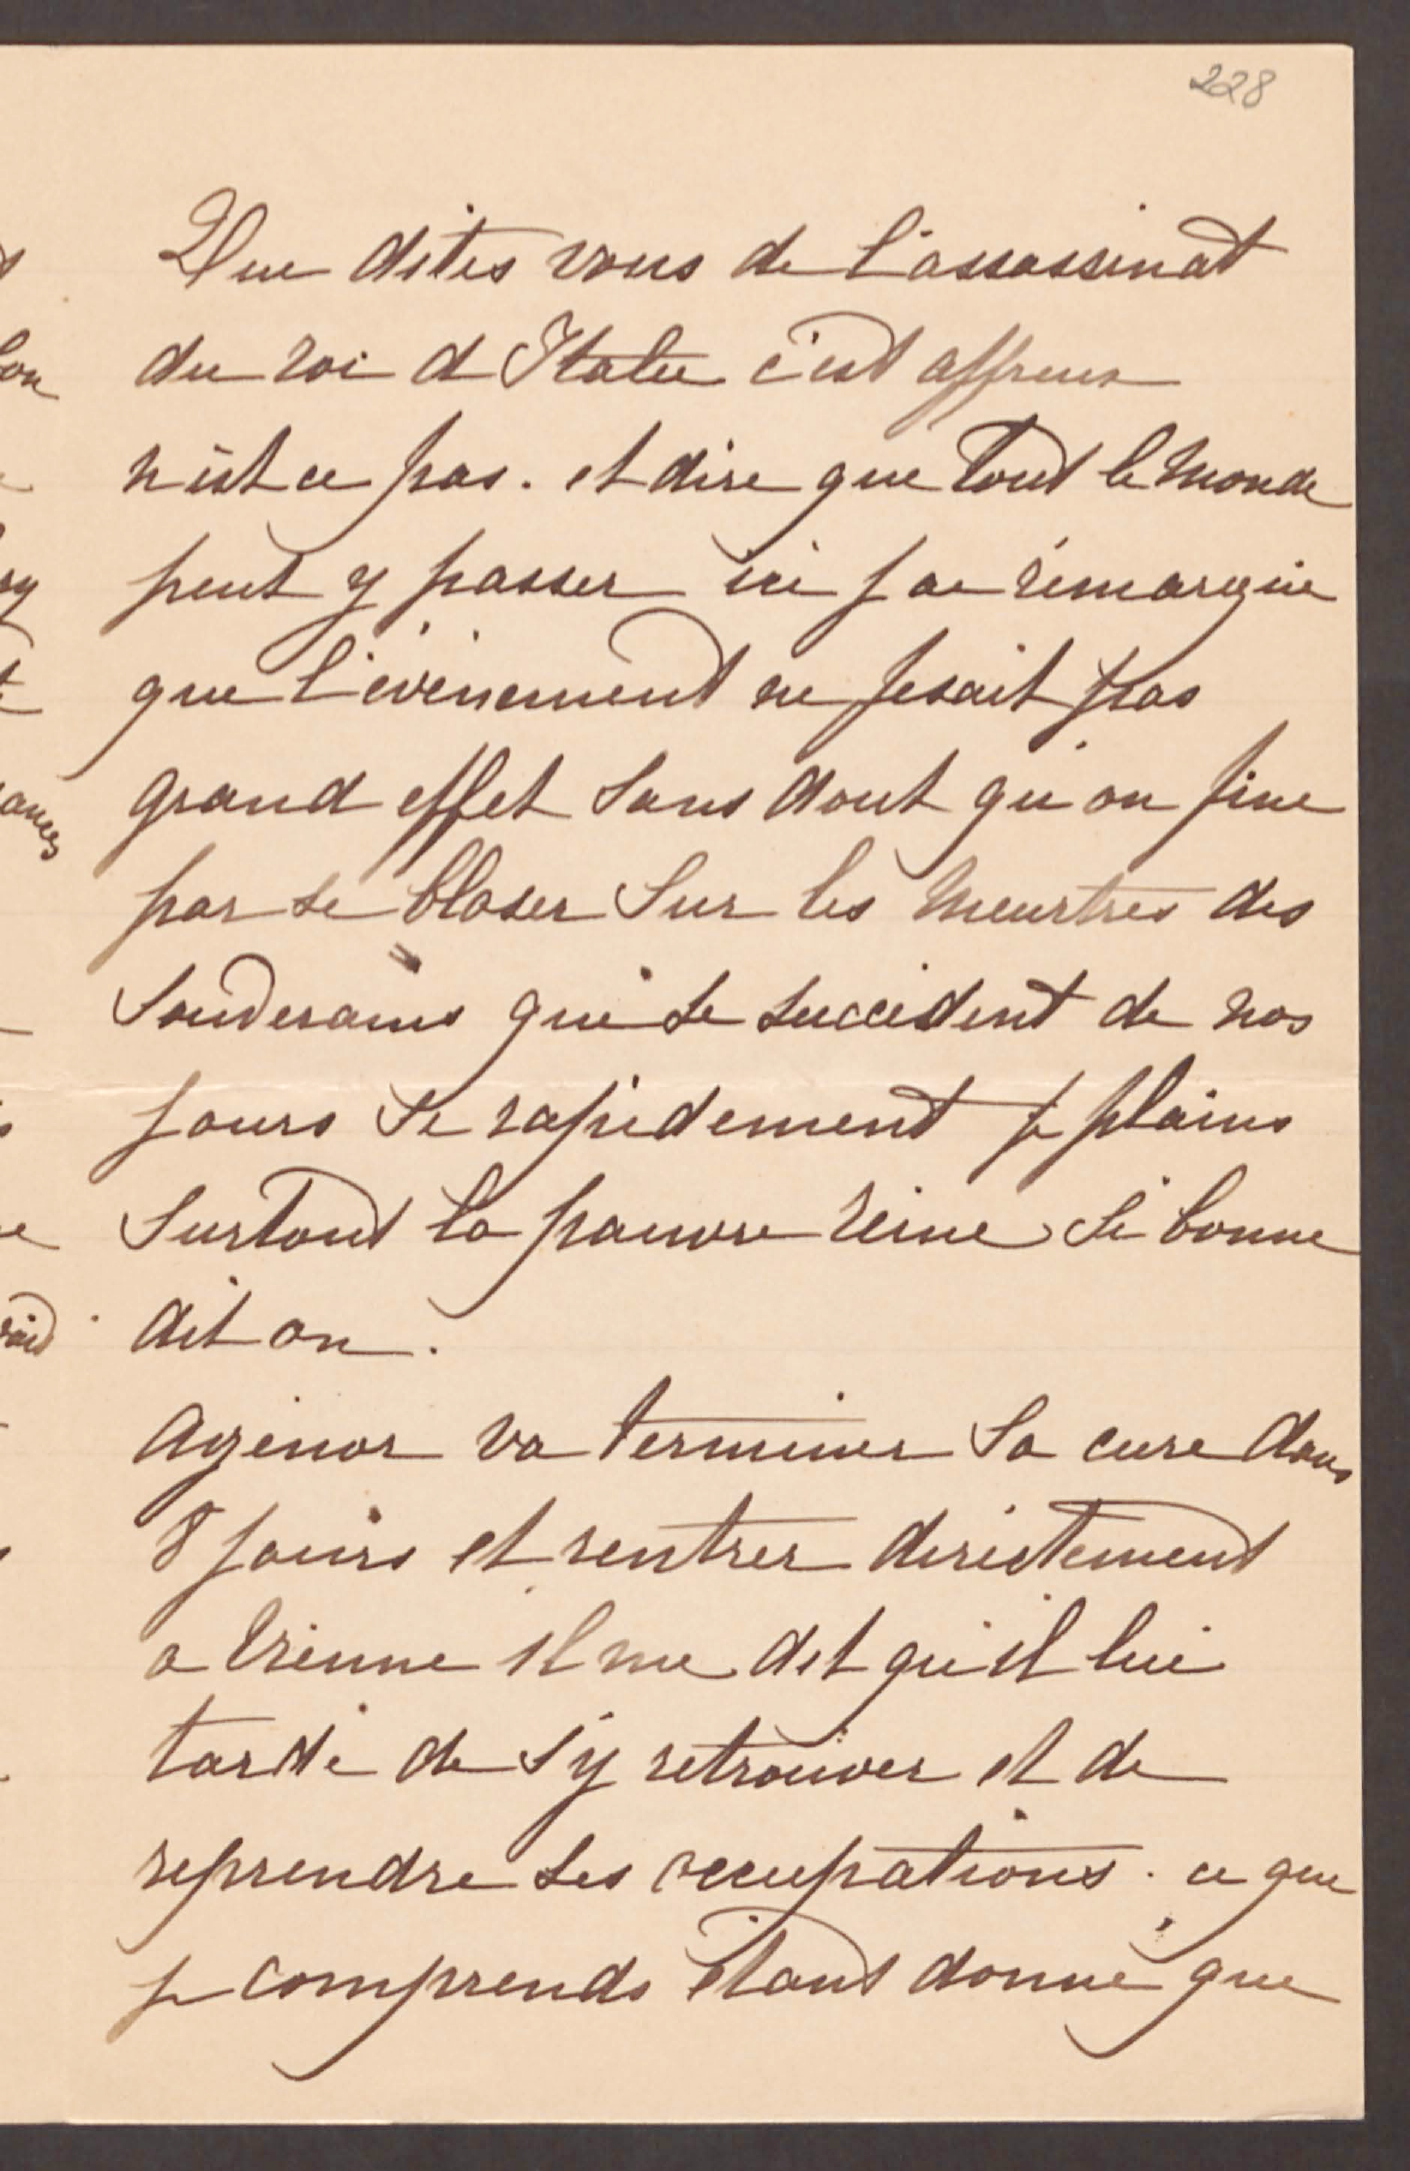 228
Que dites vous de l'assassinat
du roi d Italie c'est affreux
n'est ce pas. et dire que tout le monde
peut y passer ici j ai remarqué
que l'évènement ne fesait pas
grand effet sans dout qu'on fine
par se blaser sur les meurtres des
souverains qui se succèdent de nos
jours si rapidement je plains
surtout la pauvre reine si bonne
dit on.
Agenor va terminer sa cure dans
8 jours et rentrer directement
a Vienne il me dit qu'il lui
tarde de s'y retrouver et de
reprendre ses occupations. ce que
je comprends étant donné que